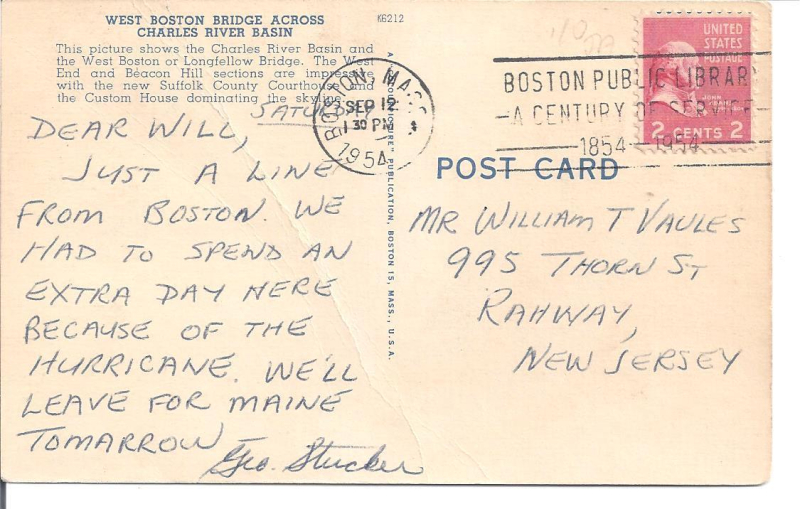 WEST BOSTON BRIDGE ACROSS
CHARLES RIVER BASIN
K6212
This picture shows the Charles River Basin and
the West Boston or Longfellow Bridge. The West
End and Beacon Hill sections are impressive
with the new Suffolk County Courthouse and
the Custom House dominating the skyline.
SATURDAY
DEAR WILL,
JUST A LINE
FROM BOSTON. WE
HAD TO SPEND AN
EXTRA DAY HERE
BECAUSE OF THE
HURRICANE. WE'LL
LEAVE FOR MAINE
TOMARROW
Geo. Stucker
PUBLICATION, BOSTON 15, MASS., U.S.A.
BOSTON, MASS.
SEP 12
1 30 PM
1954
BOSTON PUBLIC LIBRARY
A CENTURY OF SERVICE
1854-1954
UNITED
STATES
POSTAGE
JOHN ADAMS
2 CENTS 2
POST CARD
MR WILLIAM T VAULES
995 THORN ST
RAHWAY,
NEW JERSEY